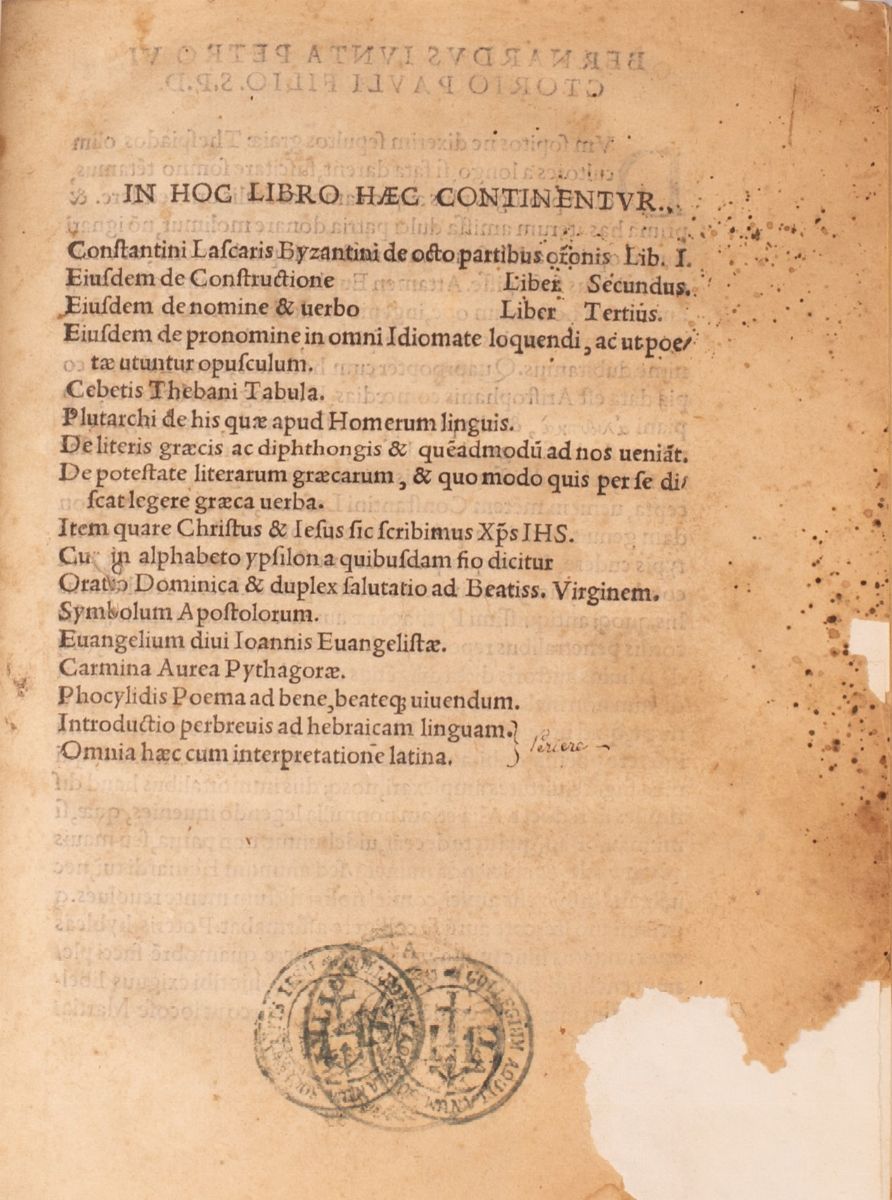 IN HOC LIBRO HÆC CONTINENTVR.
Conſtantini Laſcaris Byzantini de octo partibus oro͂nis Lib. I.
Eiuſdem de Constructione Liber Secundus.
Eiuſdem de nomine & uerbo Liber Tertius.
Eiuſdem de pronomine in omni Idiomate loquendi, ac ut poe⸗
tæ utuntur opuſculum.
Cebetis Thebani Tabula.
Plutarchi de his quæ apud Homerum linguis.
De literis græcis ac diphthongis & quēadmodū ad nos ueniāt.
De poteſtate literarum græcarum, & quo modo quis per ſe di⸗
ſcat legere græca uerba.
Item quare Chriſtus & Ieſus ſic ſcribimus Xp̄s IHS.
in alphabeto ypſilon a quibuſdam fio dicitur
Oratio Dominica & duplex ſalutatio ad Beatiss. Virginem.
Symbolum Apoſtolorum.
Euangelium diui Ioannis Euangeliſtæ.
Carmina Aurea Pythagoræ.
Phocylidis Poema ad bene, beateq; uiuendum.
Introductio perbreuis ad hebraicam linguam.
Omnia hæc cum interpretatione latina.
COLLEGIUM AQUILANUM